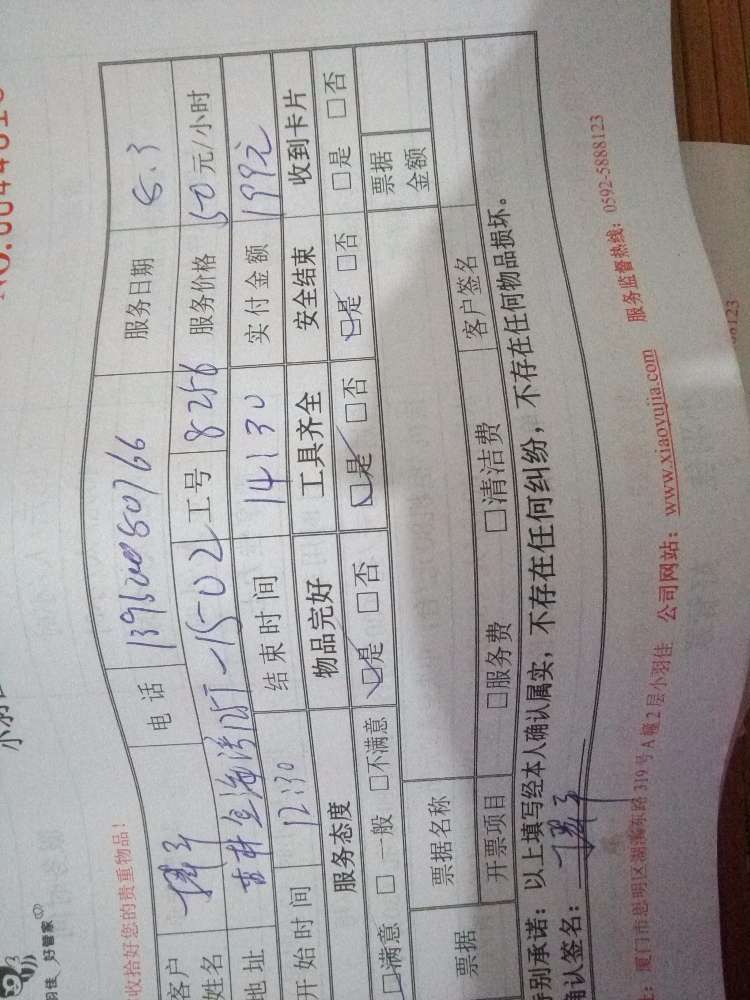 小羽
NO.
羽佳 好管家
收拾好您的贵重物品!
客户姓名 电话 服务日期 8.3
地址 15-02 工号 8256 服务价格 50元/小时
开始时间 12:30 结束时间 14:30 实付金额 199元
服务态度 物品完好 工具齐全 安全结束 收到卡片
□满意 □一般 □不满意 □是 □否 □是 □否 □是 □否 □是 □否
票据 票据名称 票据金额
开票项目 □服务费 □清洁费 客户签名
别承诺:以上填写经本人确认属实,不存在任何纠纷,不存在任何物品损坏。
确认签名:
厦门市思明区湖滨东路319号A幢2层小羽佳 公司网站:www.xiaoyujia.com 服务监督热线:0592-5888123